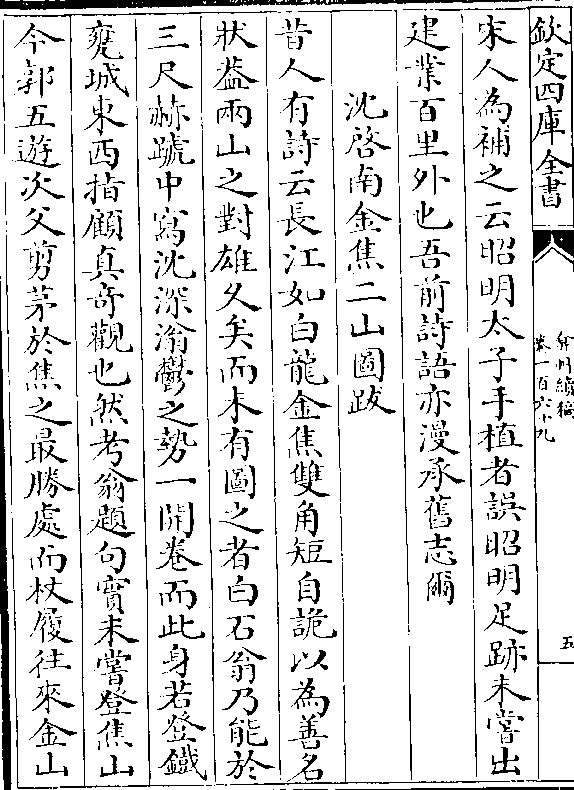 欽定四庫全書
弇州續稿
卷一百六十九
五
宋人為補之云昭明太子手植者誤昭明足跡未嘗出
建業百里外也吾前詩語亦漫承舊志爾
沈啓南金焦二山圖跋
昔人有詩云長江如白龍金焦雙角短自詭以為善名
狀葢兩山之對雄久矣而未有圖之者白石翁乃能於
三尺赫蹏中寫沈深滃鬱之勢一開卷而此身若登鐵
甕城東西指顧真竒觀也然考翁題句實未嘗登焦山
今郭五遊次父剪茅於焦之最勝處而杖履往來金山